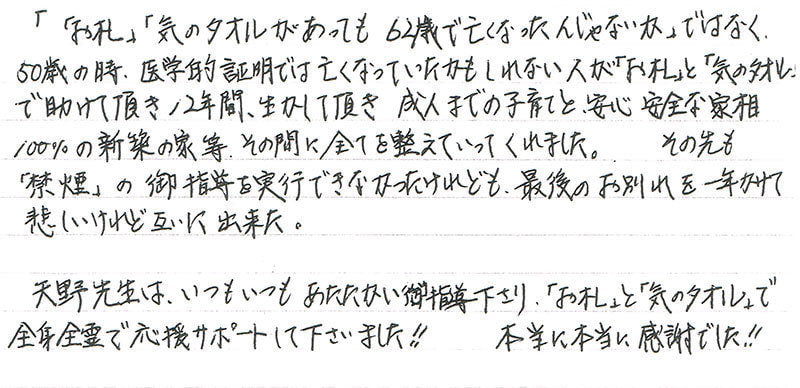 「「お札」「気のタオルがあっても 62歳で亡くなったんじゃないか」ではなく、
50歳の時、医学的証明では亡くなっていたかもしれない人が「お札」と「気のタオル」
で助けて頂き12年間、生かして頂き 成人までの子育てと、安心 安全な家相
100%の新築の家等、その間に全てを整えていってくれました。 その先も
「禁煙」の御指導を実行できなかったけれども、最後のお別れを一年かけて
悲しいけれど互いに出来た。
天野先生は、いつもいつもあたたかい御指導下さり、「お札」と「気のタオル」で
全身全霊で応援サポートして下さいました!! 本当に本当に感謝でした!!